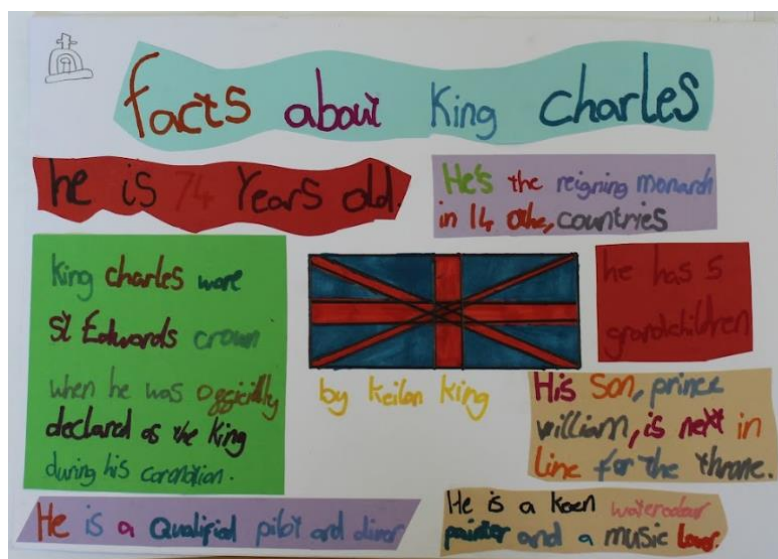 facts about King charles
he is 74 Years old.
He's the reigning monarch
in 14 othe, countries
King charles wore
St Edwards crown
when he was officially
declared as the King
during his coronation.
he has 5
grandchildren
by Keilan King
His Son, prince
william, is next in
line for the throne.
He is a Qualified pilot and diver
He is a keen watercolour
painter and a music lover.